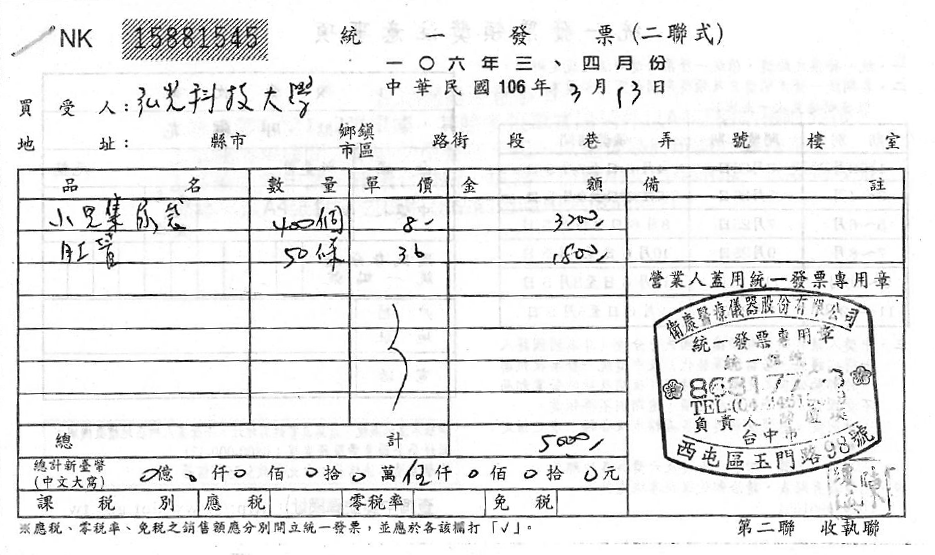 NK 15881545
統一發票(二聯式)
一○六年三、四月份
中華民國106年3月13日
買受人:弘光科技大學
地址: 縣市 鄉鎮市區 路街 段 巷 弄 號 樓 室
品名 數量 單價 金額 備註
小兒集尿袋 400個 8 3200
肛管 50條 36 1800
營業人蓋用統一發票專用章
衛康醫療儀器股份有限公司
統一發票專用章
統一編號
TEL:(04)
負責人
台中市
西屯區玉門路98號
總計 5000
總計新臺幣(中文大寫) 0億0仟0佰0拾0萬伍仟0佰0拾0元
課稅別 應稅 零稅率 免稅
※應稅、零稅率、免稅之銷售額應分別開立統一發票,並應於各該欄打「√」。
第二聯 收執聯